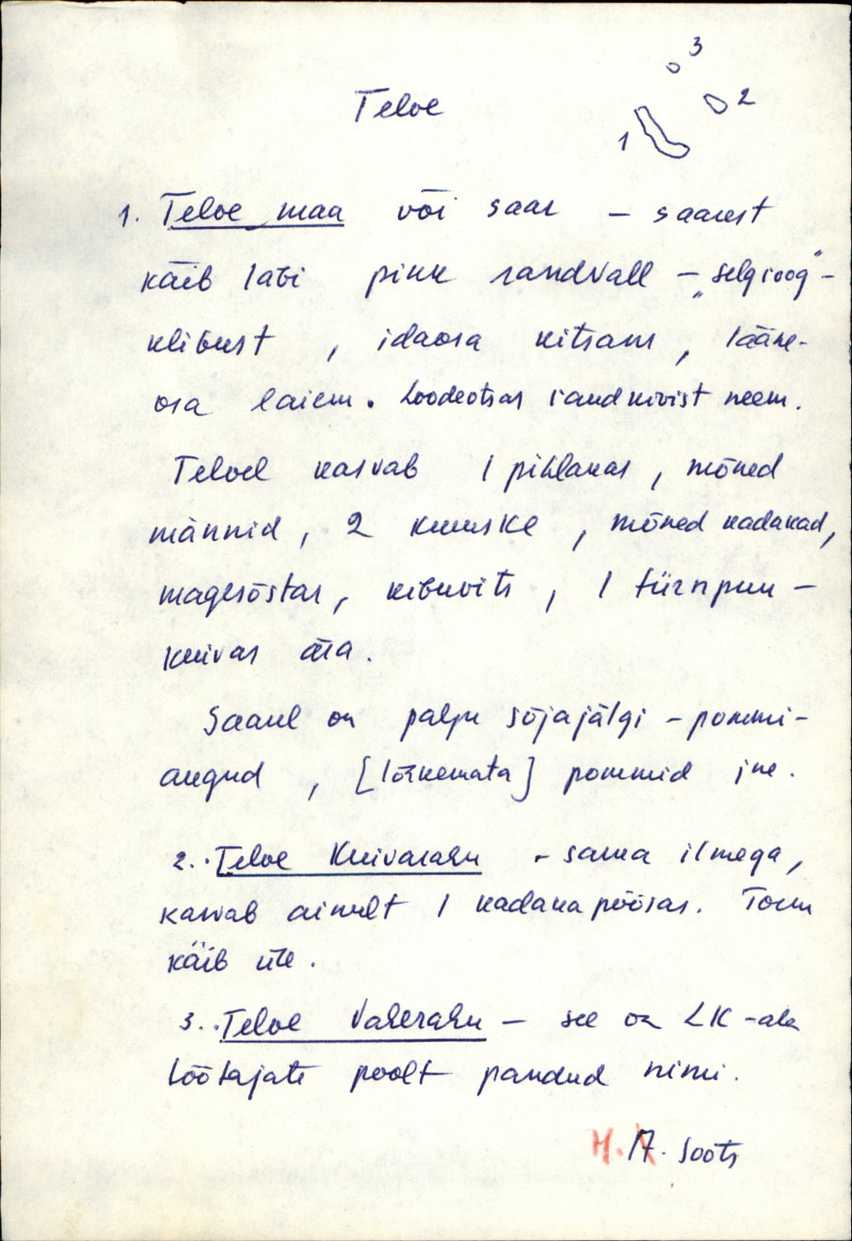 3
Teloe
2
1
1. Teloe maa või saar – saarest
käib läbi pikk randvall – „selgroog" –
klibust, idaosa kitsam, lääne-
osa laiem. Loodeotsas randkivist neem.
Teloel kasvab 1 pihlakas, mõned
männid, 2 kuuske, mõned kadakad,
magesõstar, kibuvits, 1 türnpuu –
kuivas ära.
Saarel on palju sõjajälgi – pommi-
augud, [lõhkemata] pommid jne.
2. Teloe Kuivarahu – sama ilmega,
kasvab ainult 1 kadakapõõsas. Torm
käib üle.
3. Teloe Vaherahu – see on LK-ala
töötajate poolt pandud nimi.
H. A. Soots